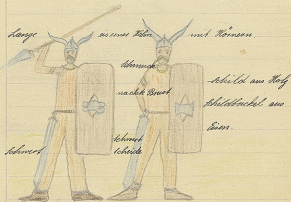 Lanze eiserner Helm mit Hörnern.
Schmuck
nackte Brust
Schild aus Holz
Schildbuckel aus
Eisen.
Schwert
Schwert
scheide